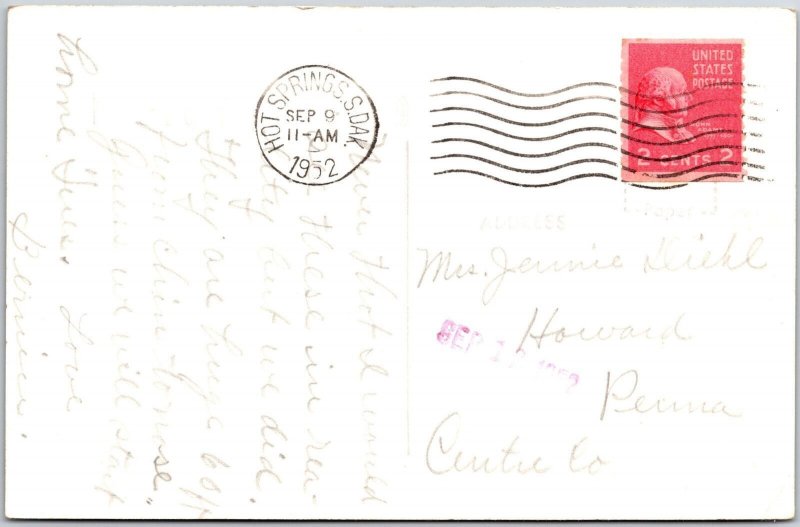 HOT SPRINGS, S.DAK.
SEP 9
11-AM
1952
UNITED
STATES
POSTAGE
JOHN
ADAMS
2 CENTS 2
ADDRESS
Mrs. Jennie Diehl
Howard
Penna
Centre Co
SEP 12 1952
Never thot I would
see these in rea-
lity but we did.
They are huge 60 ft
from chin to nose.
Guess we will start
home Tues. Love
Bernice.